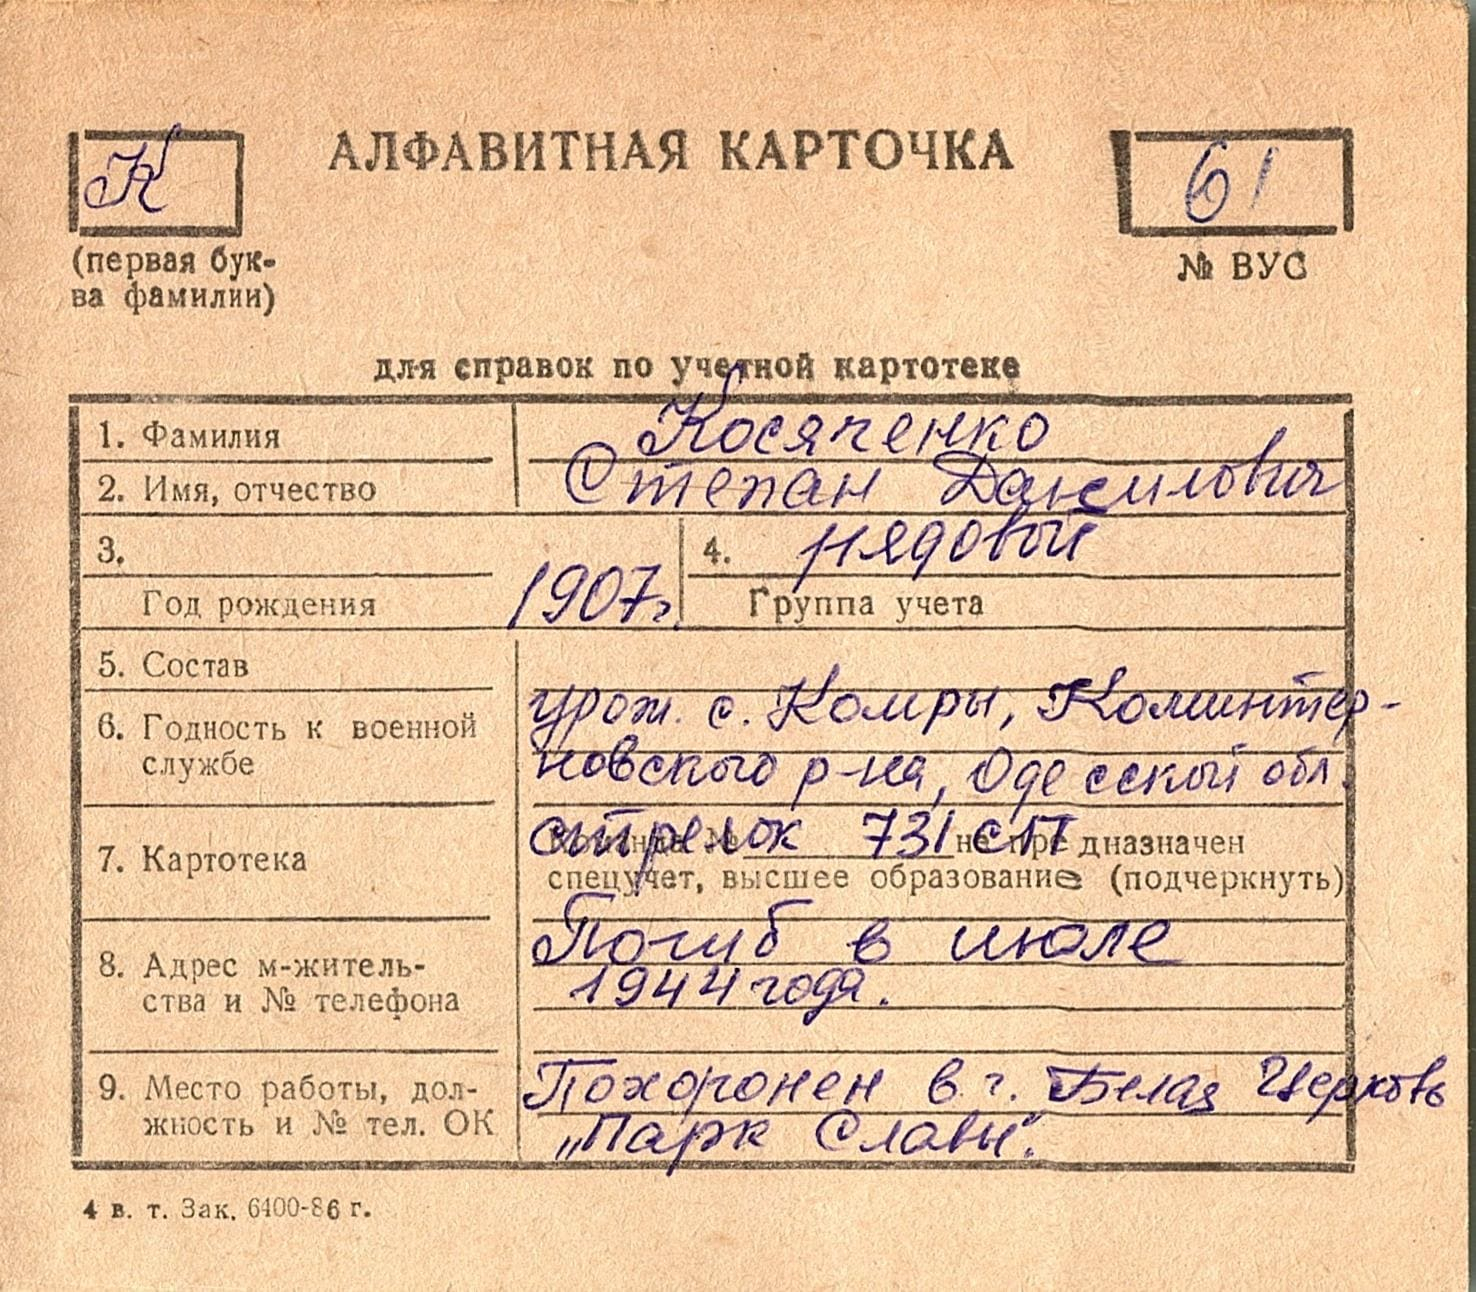 К
АЛФАВИТНАЯ КАРТОЧКА
61
(первая бук-
ва фамилии)
№ ВУС
для справок по учетной картотеке
1. Фамилия
Косяченко
2. Имя, отчество
Степан Данилович
3.
1907г.
Год рождения
4. рядовой
Группа учета
5. Состав
6. Годность к военной
службе
урож. с. Комры, Коминтер-
новского р-на, Одесской обл.
7. Картотека
стрелок 731 СП
Команда № не предназначен
спецучет, высшее образование (подчеркнуть)
8. Адрес м-житель-
ства и № телефона
Погиб в июле
1944 года.
9. Место работы, дол-
жность и № тел. ОК
Похоронен в г. Белая Церковь
„Парк Славы".
4 в. т. Зак. 6400-86 г.